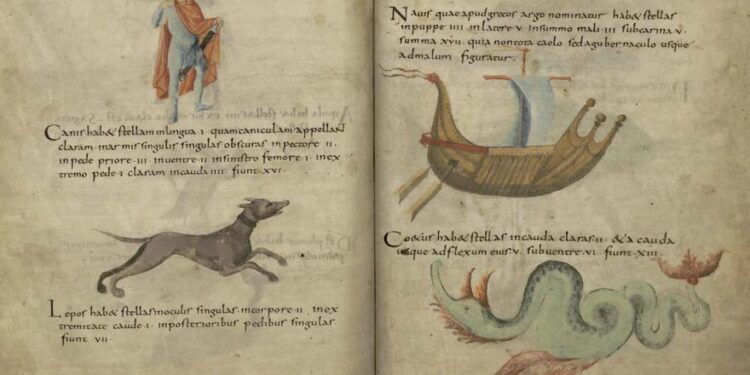 Canis hab& stellam in lingua ·I· quam caniculam appellant
claram· in armis singulis singulas obscuras in pectore ·II·
in pede priore ·III· in ventre ·II· in sinistro femore ·I· in ex
tremo pede ·I· claram in cauda ·IIII· fiunt· XVI·
Lepos hab& stellas in oculis singulas· in corpore ·II· in ex
tremitate caude ·I· in posterioribus pedibus singulas
fiunt VII
Navis quae apud grecos argo nominatur hab& stellas
in puppe ·IIII· in latere ·V· in summo mali ·III· sub carina ·V·
summa XVII· quia non tota caelo sed a gubernaculo usque
ad malum figuratur·
hab& stellas in cauda claras ·II· & a cauda
usque ad flexum eius ·V· sub ventre ·VI· fiunt· XIII·